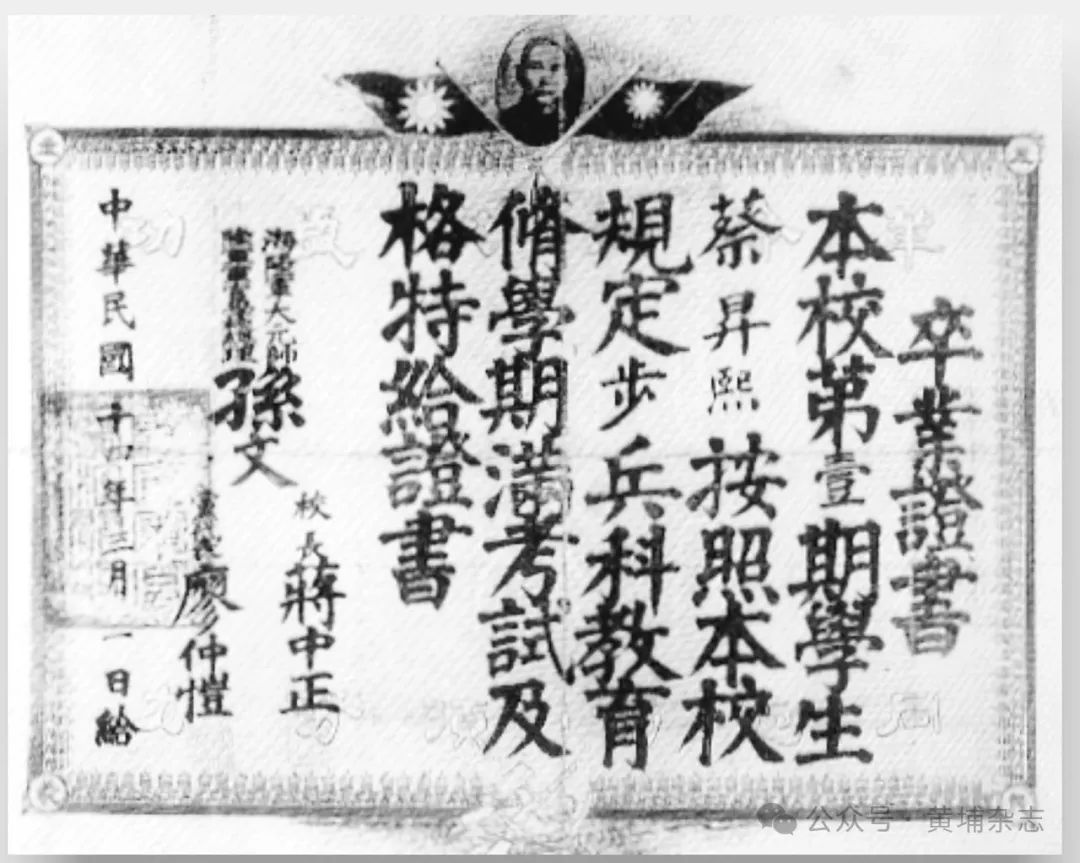 卒業證書
本校第壹期學生
蔡昇熙按照本校
規定步兵科教育
脩學期滿考試及
格特給證書
海陸軍大元帥
陸軍軍官學校總理
孫文
校長蔣中正
黨代表廖仲愷
中華民國十四年三月一日給
公众号·黄埔杂志